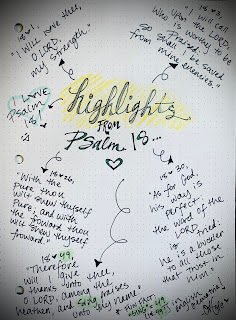 18 v 1,
"I will love thee,
O LORD,
my strength."
18 v 3,
"I will call
upon the LORD,
Who is worthy to be
Praised:
so shall I be saved
from mine enemies."
I LOVE
Psalm
18!
highlights
FROM
PSALM 18...
18 v 26,
"With the
pure thou
wilt shew thyself
Pure; and with
the froward thou
wilt shew thyself
froward."
18 v 30,
"As for God
his way is
perfect:
the word of the
LORD is
tried:
he is a buckler
to all those
that trust in
him"
18 v 49,
"Therefore
will I give
thanks unto thee,
O LORD, among the
heathen, and sing praises
unto thy name"